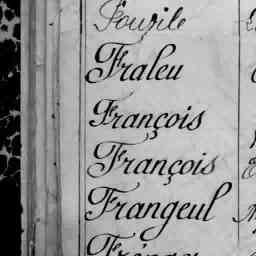 Fouzile
Fraleu
François
François
Frangeul